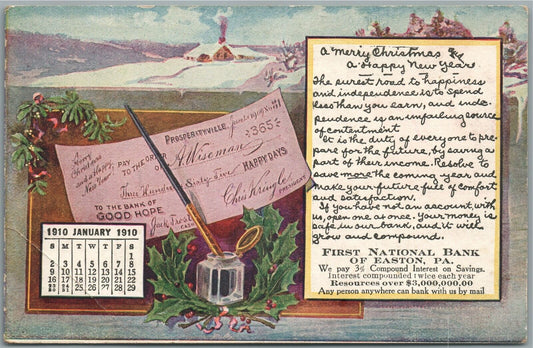 A Merry Christmas &
A Happy New Year
The surest road to happiness
and independence is to spend
less than you earn, and inde-
pendence is an unfailing source
of contentment
It is the duty of everyone to pre-
pare for the future, by saving a
part of their income. Resolve to
save more the coming year and
make your future full of comfort
and satisfaction.
If you have not an account, with
us, open one at once. Your money is
safe in our bank, and it will
grow and compound.
FIRST NATIONAL BANK
OF EASTON, PA.
We pay 3% Compound Interest on Savings.
Interest compounded twice each year
Resources over $3,000,000.00
Any person anywhere can bank with us by mail
PROSPERITYVILLE, June 1st 1909 No.
Merry
Christmas
and a Happy
New Year
PAY TO THE ORDER OF A. Wiseman $365
Three Hundred Sixty Five HAPPY DAYS
TO THE BANK OF
GOOD HOPE
Jack Frost
CASH
Chris Kringle
PRESIDENT
1910 JANUARY 1910
S M T W T F S
1
2 3 4 5 6 7 8
9 10 11 12 13 14 15
16 17 18 19 20 21 22
23 24 25 26 27 28 29
30 31